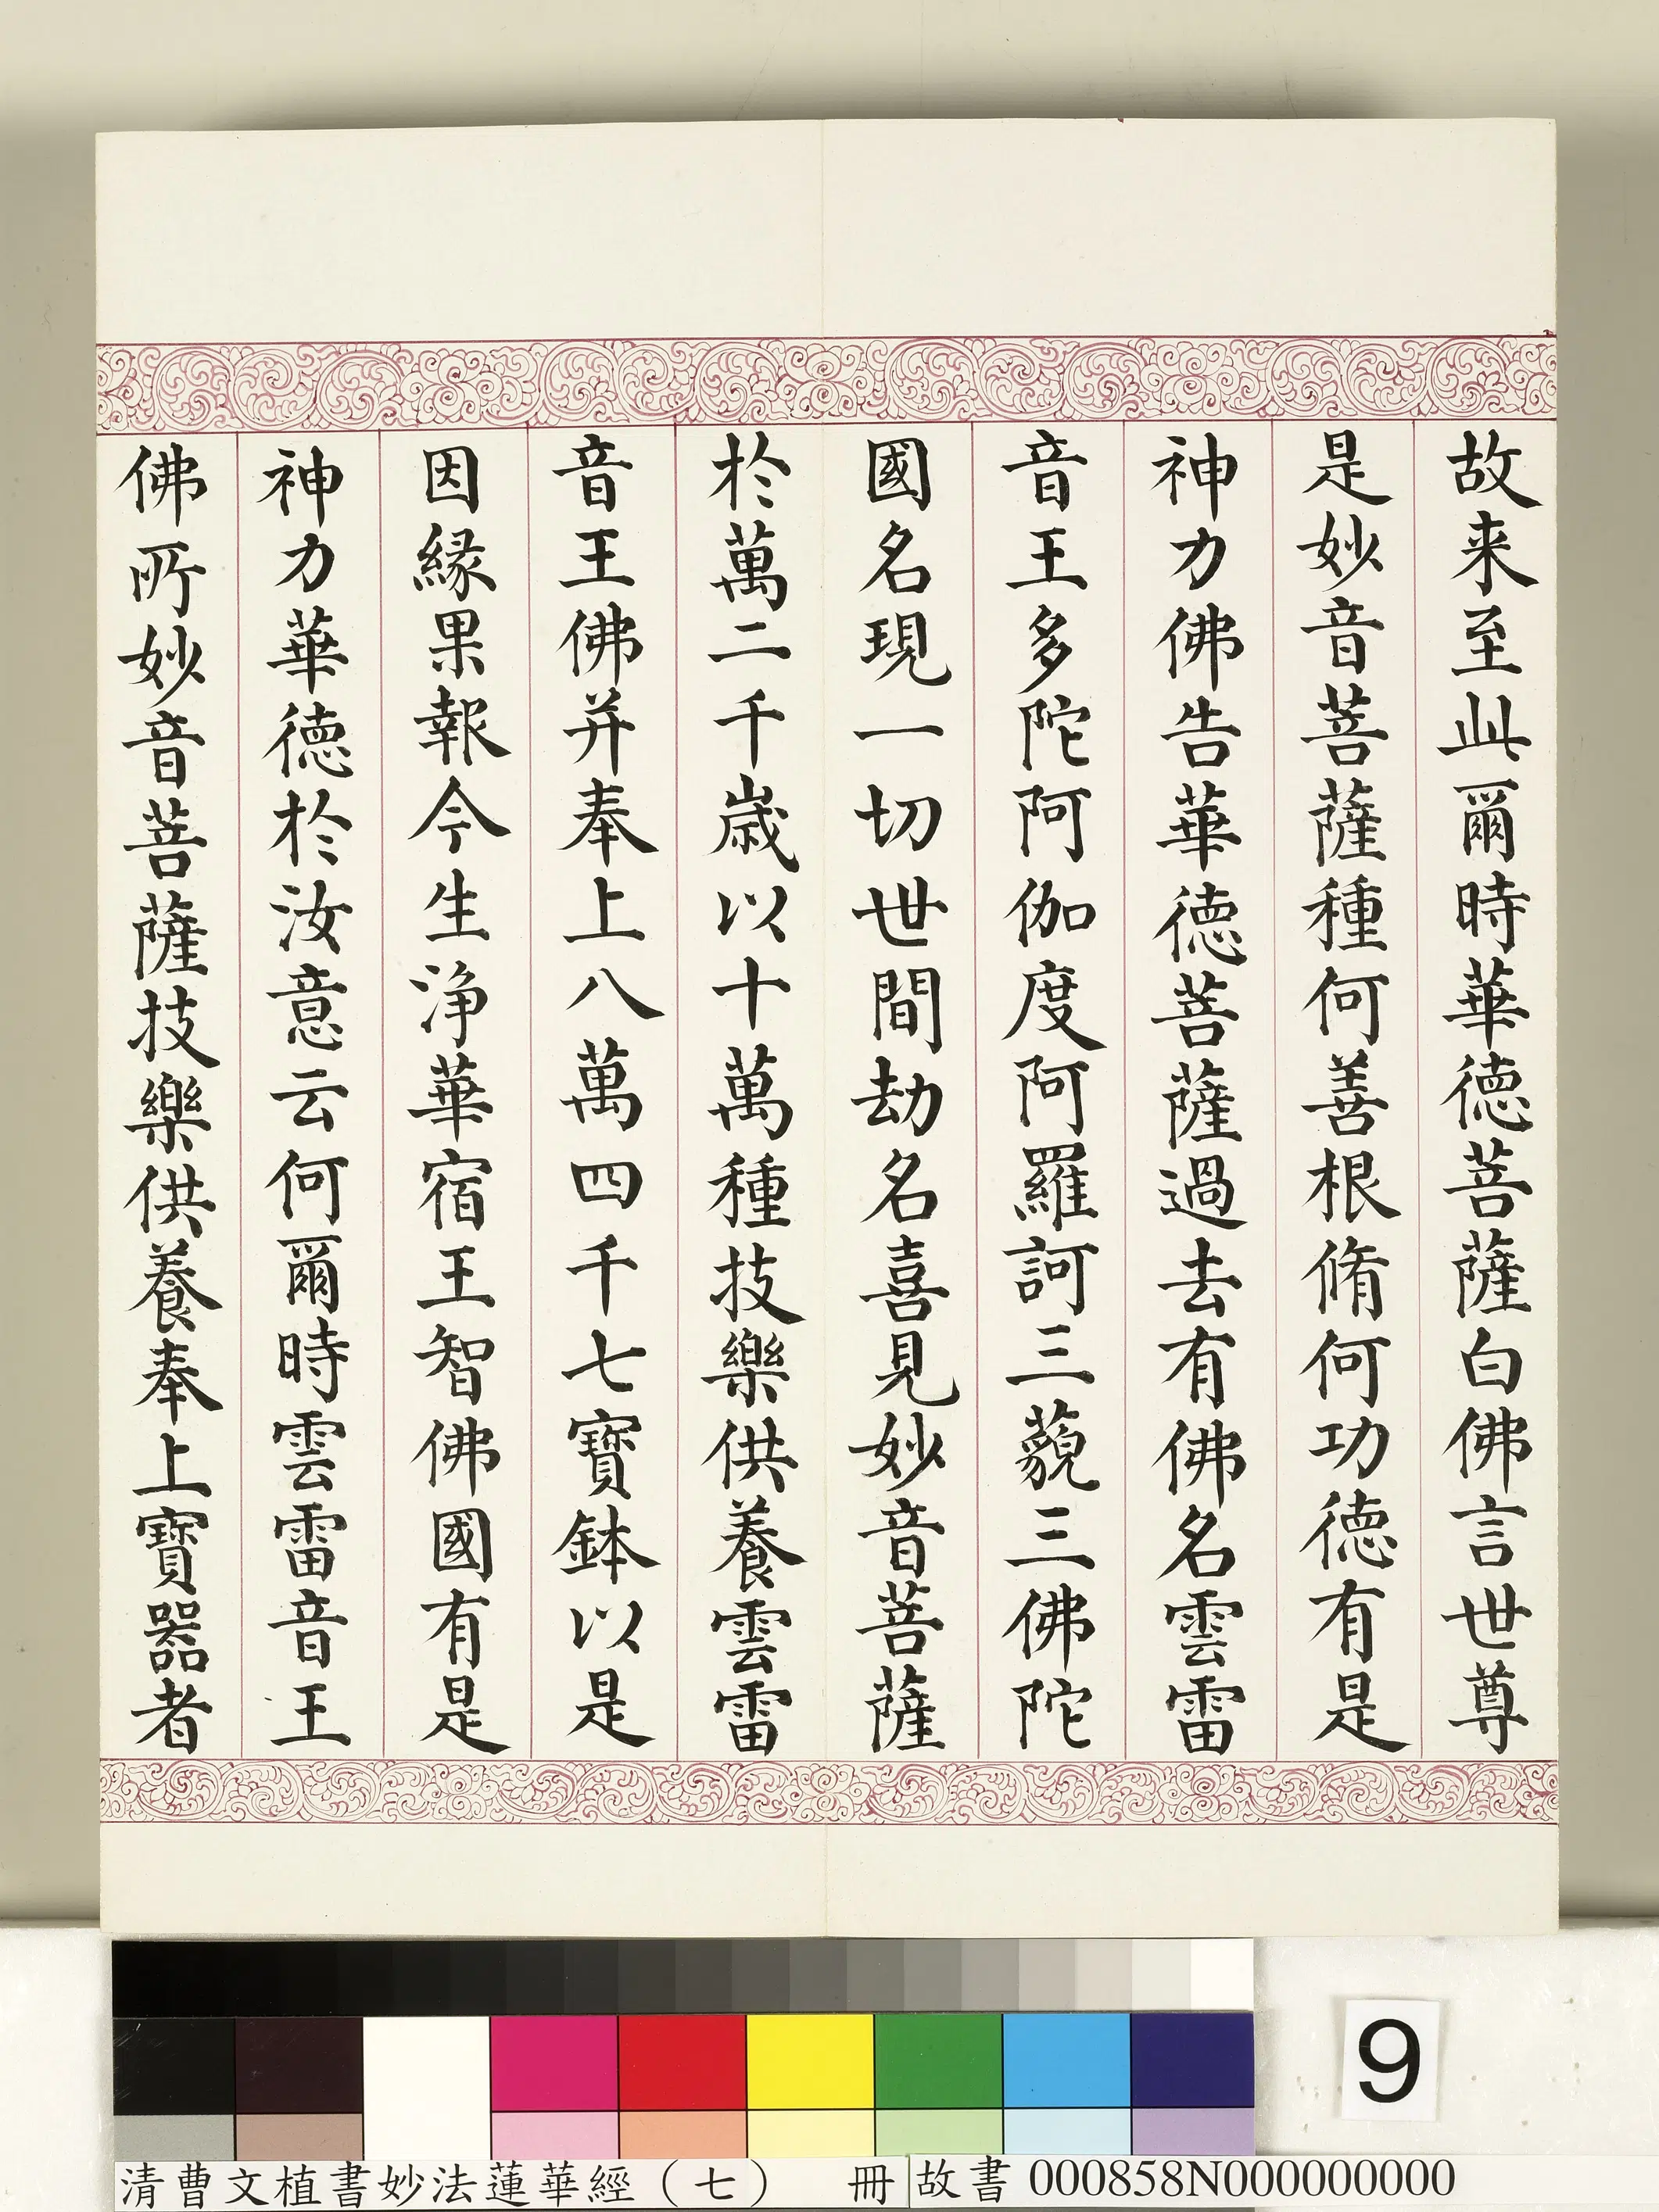 故来至此爾時華德菩薩白佛言世尊
是妙音菩薩種何善根脩何功德有是
神力佛告華德菩薩過去有佛名雲雷
音王多陀阿伽度阿羅訶三藐三佛陀
國名現一切世間劫名喜見妙音菩薩
於萬二千歲以十萬種技樂供養雲雷
音王佛并奉上八萬四千七寶鉢以是
因緣果報今生淨華宿王智佛國有是
神力華德於汝意云何爾時雲雷音王
佛所妙音菩薩技樂供養奉上寶器者
9
清曹文植書妙法蓮華經（七） 冊 故書 000858N000000000